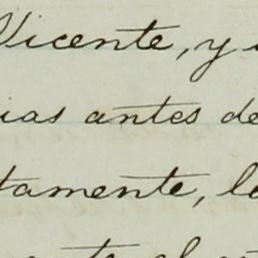 Vicente, y
ias antes de
tamente, la